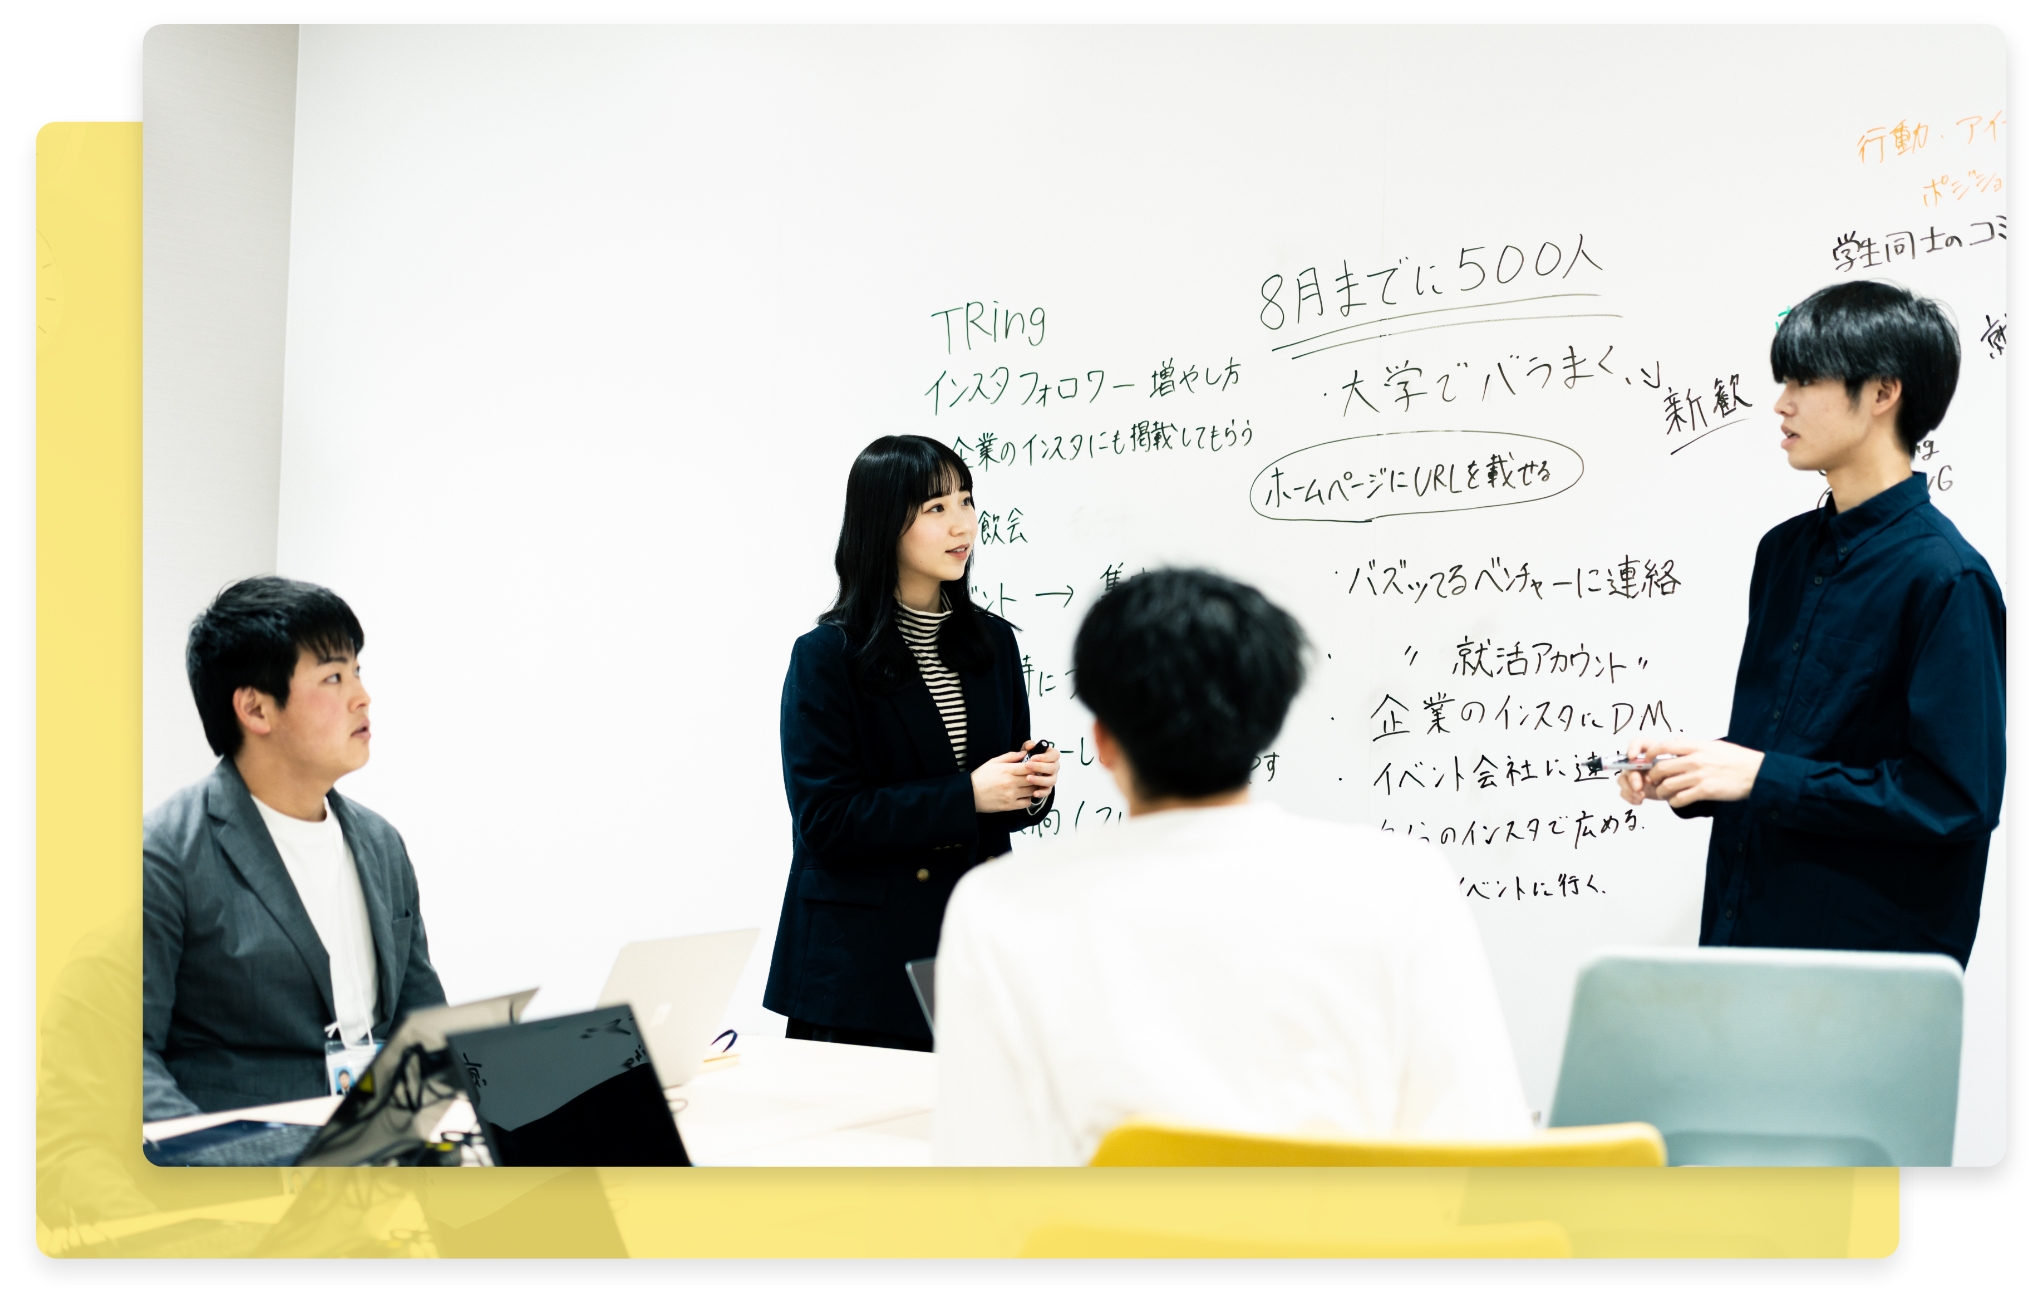 TRing
インスタフォロワー増やし方
企業のインスタにも掲載してもらう
飲会
ント →
8月までに500人
・大学でバラまく、
新歓
ホームページにURLを載せる
・バズッてるベンチャーに連絡
・ 〃 就活アカウント〃
・企業のインスタにDM.
・イベント会社に連
のインスタで広める.
ベントに行く.
行動・アイ
ポジショ
学生同士のコミ
就